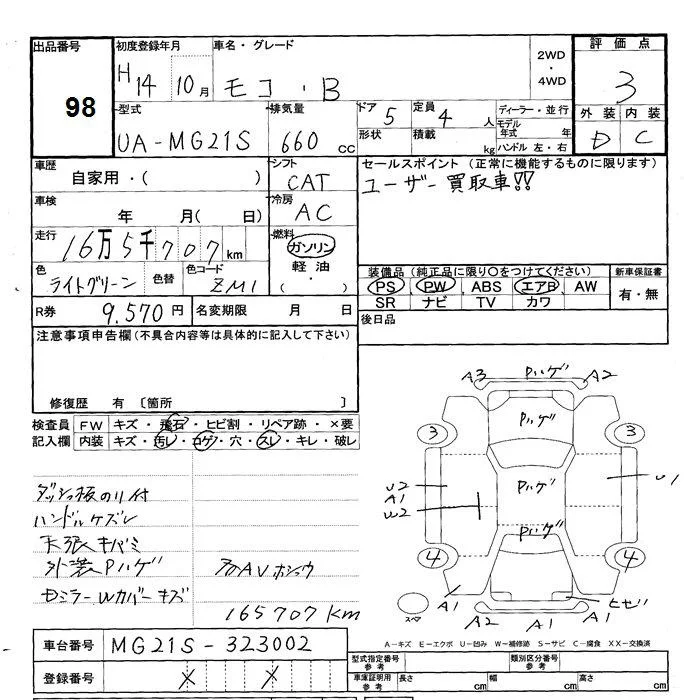 出品番号
98
初度登録年月
H14 10月
車名・グレード
モコ・B
2WD
・
4WD
評価点
3
外装 内装
D C
型式
UA-MG21S
排気量
660 cc
ドア
5
定員
4 人
形状
積載
kg
ディーラー・並行
モデル年式 年
ハンドル 左・右
車歴
自家用・( )
シフト
CAT
セールスポイント (正常に機能するものに限ります)
ユーザー買取車!!
車検
年 月( 日)
冷房
AC
走行
16万5千707km
燃料
ガソリン
軽油
・
( )
色
ライトグリーン
色替
色コード
ZM1
装備品 (純正品に限り○をつけてください)
PS PW ABS エアB AW
SR ナビ TV カワ
新車保証書
有・無
R券
9,570円
名変期限 月 日
後日品
注意事項申告欄 (不具合内容等は具体的に記入して下さい)
修復歴 有 〔箇所 〕
検査員記入欄
FW キズ・飛石・ヒビ割・リペア跡・×要
内装 キズ・汚レ・コゲ・穴・スレ・キレ・破レ
ダッシュ板のり付
ハンドルケズレ
天張キバミ
外装Pハゲ
Wカバーキズ
165707km
A3 Pハゲ A2
Pハゲ
3 3
U2
A1
W2
Pハゲ
U1
Pハゲ
4 4
A1
ヒビ
A1
A2 A1
スペア
A-キズ E-エクボ U-凹み W-補修跡 S-サビ C-腐食 XX-交換済
車台番号
MG21S-323002
登録番号
X X
型式指定番号
参考
類別区分番号
参考
車庫証明用
参考
長さ cm
幅 cm
高さ cm